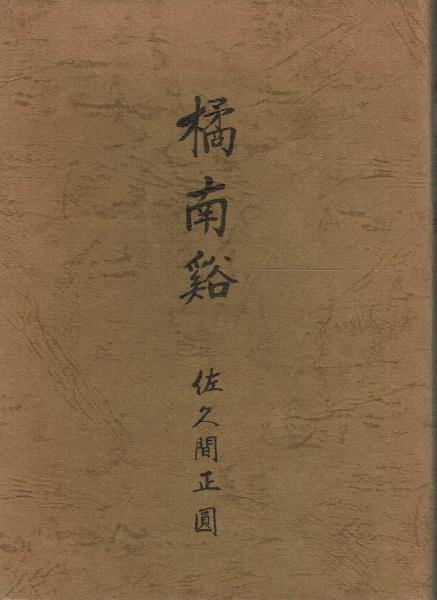 橘南谿
佐久間正圓